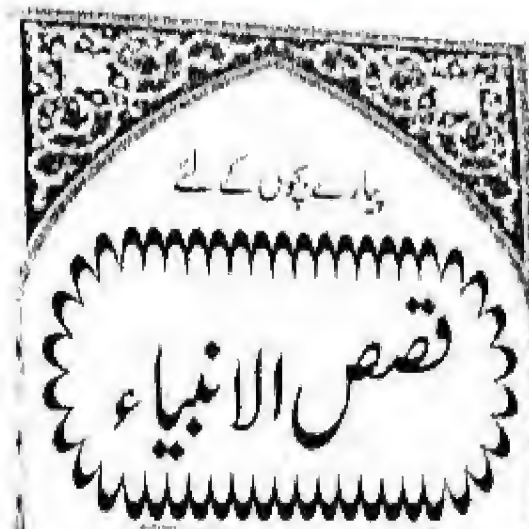 پیارے بچوں کے لئے
قصص الانبیاء